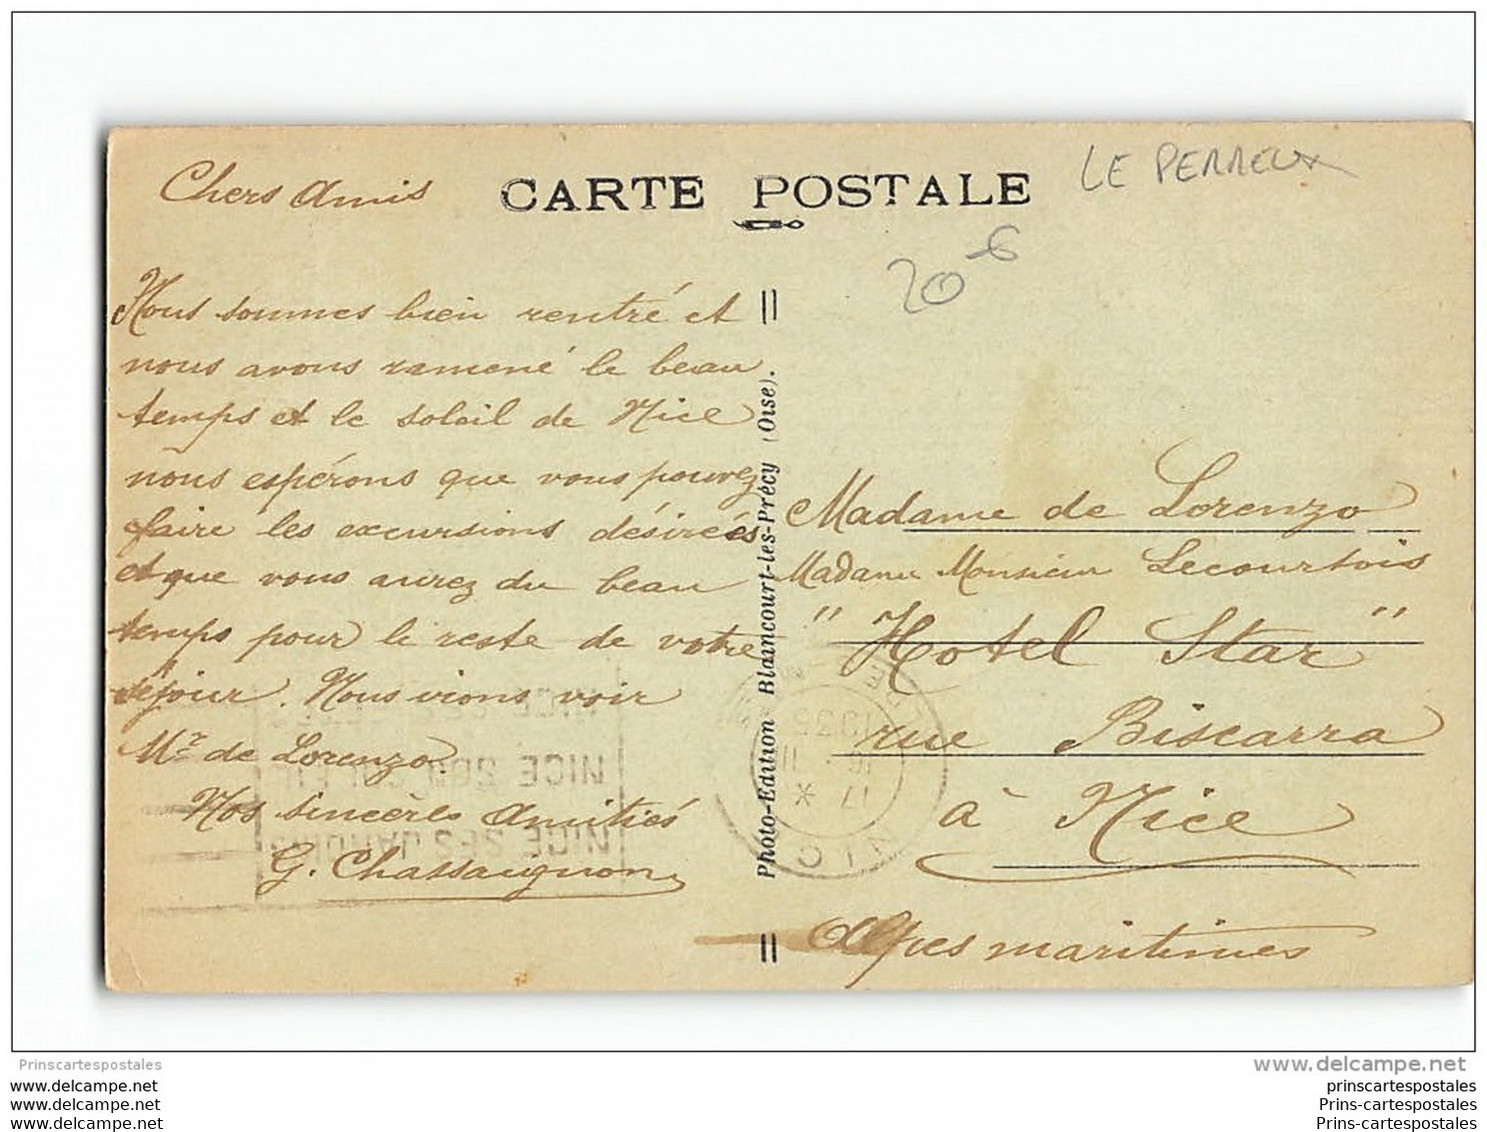 Chers Amis
CARTE POSTALE
LE PERREUX
20 €
Nous sommes bien rentré et
nous avons ramené le beau
temps et le soleil de Nice
nous espérons que vous pouvez
faire les excursions désirées
et que vous aurez du beau
temps pour le reste de votre
séjour. Nous irons voir
Mr de Lorenzo.
Nos sincères Amitiés
G. Chassaignon
Photo-Edition Blaincourt-les-Précy (Oise).
Madame de Lorenzo
Madame Monsieur Lecourtois
"Hotel Star"
rue Biscarra
à Nice
Alpes maritimes
NICE SES
NICE SON SOLEIL
NICE SES JARDINS
17 *
16 - III
1935
NIC
Prinscartespostales
www.delcampe.net
www.delcampe.net
www.delcampe.net
www.delcampe.net
prinscartespostales
Prins-cartespostales
Prins-cartespostales